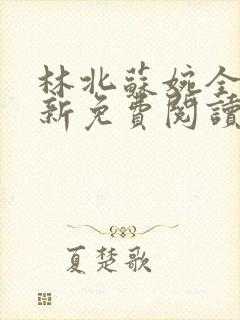 林北蘇婉全
新免費閱讀
夏楚歌